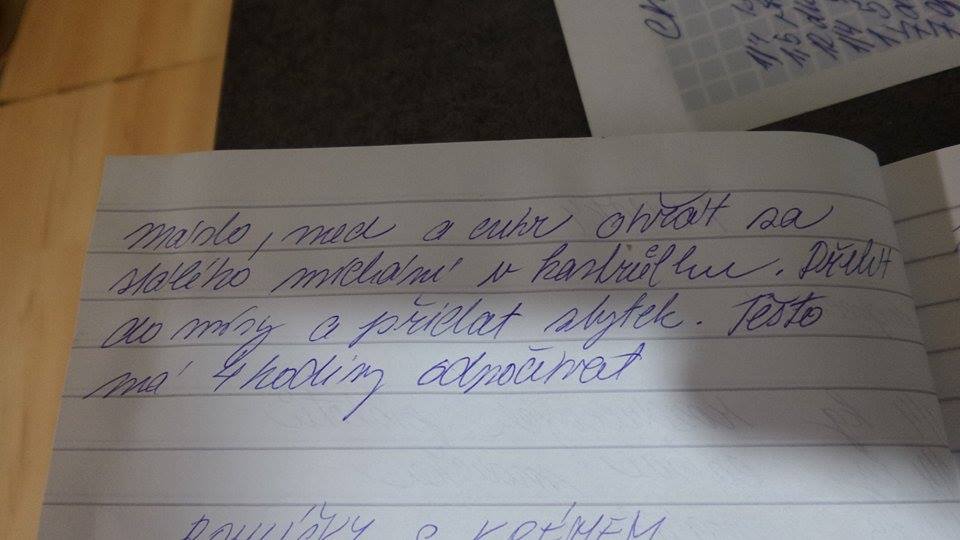 máslo, med a cukr ohřát za
stálého míchání v kastrůlku. Přelít
do mísy a přidat zbytek. Těsto
má 4 hodiny odpočívat
S KRÉMEM